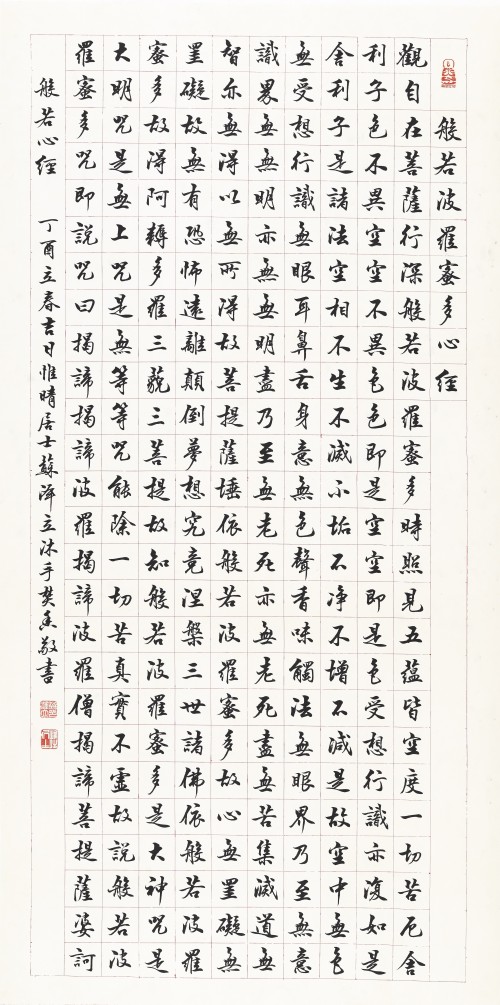 般若波羅蜜多心經
觀自在菩薩行深般若波羅蜜多時照見五蘊皆空度一切苦厄舍
利子色不異空空不異色色即是空空即是色受想行識亦復如是
舍利子是諸法空相不生不滅不垢不淨不增不減是故空中無色
無受想行識無眼耳鼻舌身意無色聲香味觸法無眼界乃至無意
識界無無明亦無無明盡乃至無老死亦無老死盡無苦集滅道無
智亦無得以無所得故菩提薩埵依般若波羅蜜多故心無罣礙無
罣礙故無有恐怖遠離顛倒夢想究竟涅槃三世諸佛依般若波羅
蜜多故得阿耨多羅三藐三菩提故知般若波羅蜜多是大神咒是
大明咒是無上咒是無等等咒能除一切苦真實不虛故說般若波
羅蜜多咒即說咒曰揭諦揭諦波羅揭諦波羅僧揭諦菩提薩婆訶
般若心經 丁酉立春吉日惟晴居士蘇澤立沐手焚香敬書